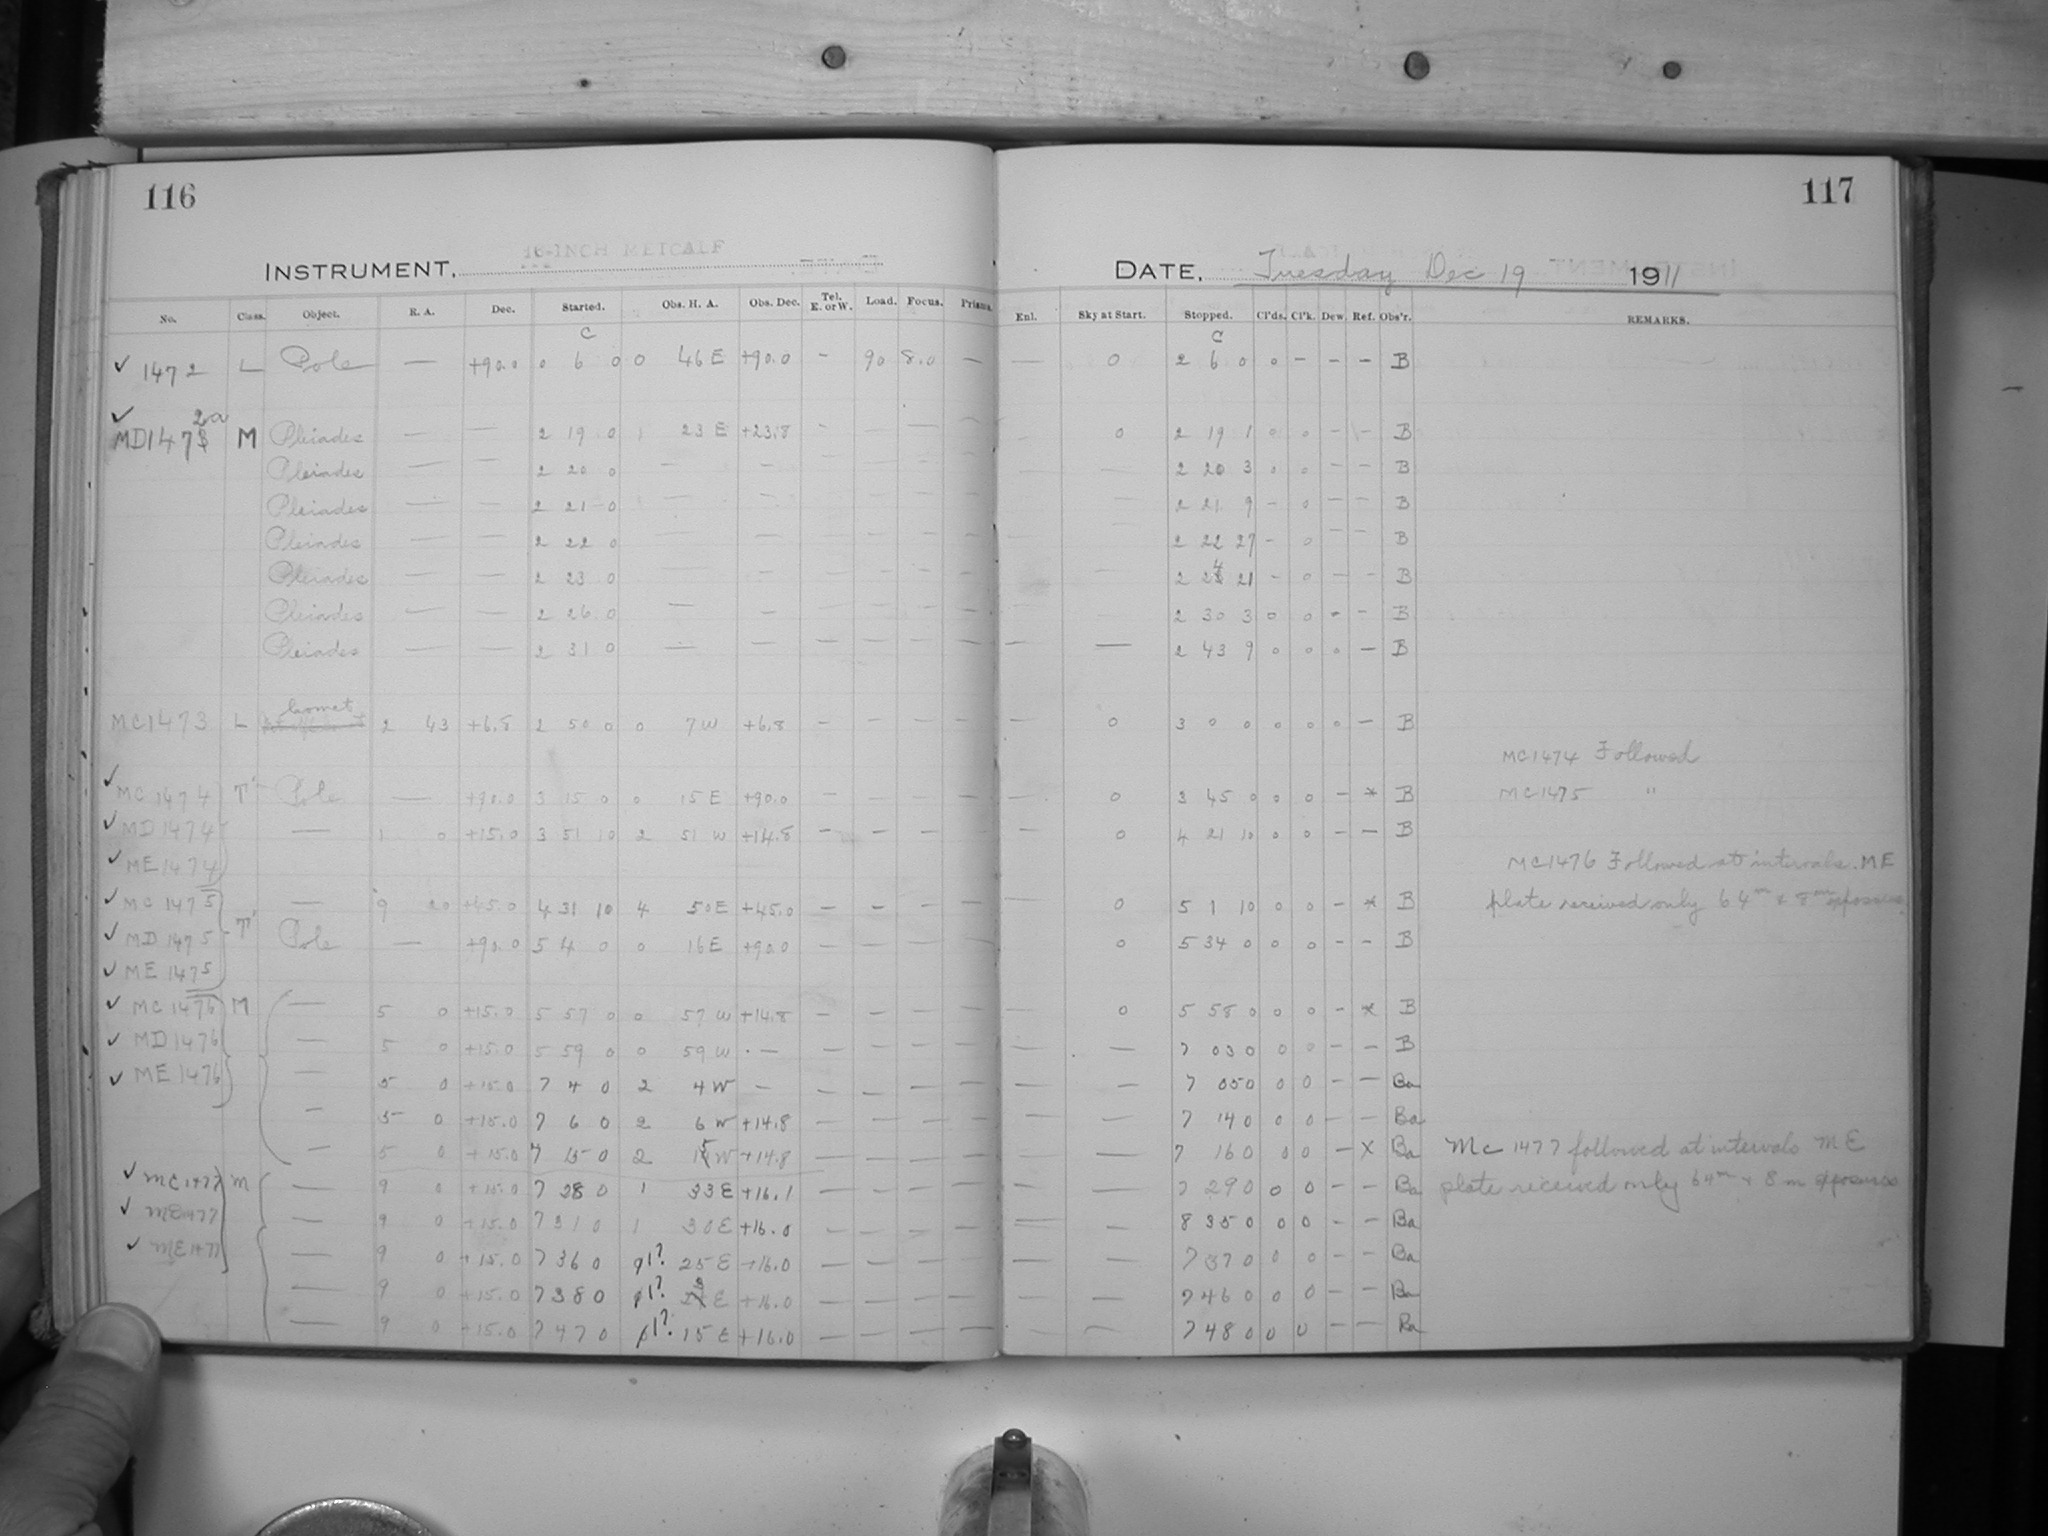 116
117
INSTRUMENT, 16-INCH METCALF
DATE, Tuesday Dec 19 1911
No. Class. Object. R. A. Dec. Started. Obs. H. A. Obs. Dec. Tel. E. or W. Load. Focus. Prisms. Enl. Sky at Start. Stopped. Cl'ds. Cl'k. Dew. Ref. Obs'r. REMARKS.
C C
✓ 1472 L Pole — +90.0 0 6 0 0 46 E +90.0 - 90 8.0 — — 0 2 6 0 0 - - - B
✓ 2a
MD147 M Pleiades — — 2 19 0 1 23 E +23.8 - — — — — 0 2 19 1 0 0 - - B
Pleiades — — 2 20 0 — — 2 20 3 0 0 - - B
Pleiades — — 2 21 0 — — 2 21 9 - 0 - - B
Pleiades — — 2 22 0 — — 2 22 27 - 0 - - B
Pleiades — — 2 23 0 — — 2 24 21 - 0 - - B
Pleiades — — 2 26 0 — — 2 30 3 0 0 - - B
Pleiades — — 2 31 0 — — — — — — — — — 2 43 9 0 0 0 — B
Comet
MC1473 L 2 43 +6.8 2 50 0 0 7 W +6.8 — — — — — 0 3 0 0 0 0 0 — B
MC1474 Followed
✓ MC 1474 T' Pole — +90.0 3 15 0 0 15 E +90.0 — — — — — 0 3 45 0 0 0 - * B MC1475 "
✓ MD 1474 — 1 0 +15.0 3 51 10 2 51 W +14.8 — — — — — 0 4 21 10 0 0 - — B
✓ ME 1474 MC1476 Followed at intervals. ME
✓ MC 1475 — 9 20 +45.0 4 31 10 4 50 E +45.0 — — — — — 0 5 1 10 0 0 - * B plate received only 64m & 8m exposures.
✓ MD 1475 T' Pole — +90.0 5 4 0 0 16 E +90.0 — — — — — 0 5 34 0 0 0 - - B
✓ ME 1475
✓ MC 1476 M — 5 0 +15.0 5 57 0 0 57 W +14.8 — — — — — 0 5 58 0 0 0 - * B
✓ MD 1476 — 5 0 +15.0 5 59 0 0 59 W — — — — — — — 7 03 0 0 0 - - B
✓ ME 1476 — 5 0 +15.0 7 4 0 2 4 W — — — — — — — 7 05 0 0 0 - - Ba
— 5 0 +15.0 7 6 0 2 6 W +14.8 — — — — — — 7 14 0 0 0 - - Ba
— 5 0 +15.0 7 15 0 2 15 W +14.8 — — — — — — 7 16 0 0 0 - X Ba Mc 1477 followed at intervals ME
✓ MC 1477 M — 9 0 +15.0 7 28 0 1 33 E +16.1 — — — — — — 7 29 0 0 0 - - Ba plate received only 64m & 8 m exposures
✓ MD 1477 — 9 0 +15.0 7 31 0 1 30 E +16.0 — — — — — — 8 35 0 0 0 - - Ba
✓ ME 1477 — 9 0 +15.0 7 36 0 1? 25 E +16.0 — — — — — — 7 37 0 0 0 - - Ba
— 9 0 +15.0 7 38 0 1? 23 E +16.0 — — — — — — 7 46 0 0 0 - - Ba
— 9 0 +15.0 7 47 0 1? 15 E +16.0 — — — — — — 7 48 0 0 0 - - Ba